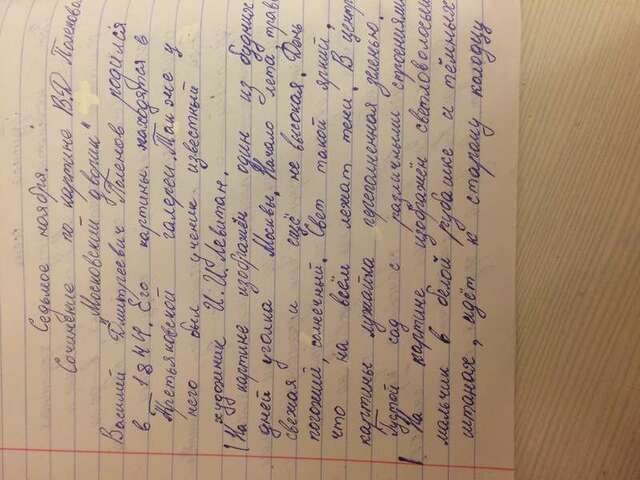 Седьмое ноября.
Сочинение по картине В.Д Поленова
"Московский дворик"
Василий Дмитреевич Поленов родился
в 1844. Его картины находятся в
Третьяковской галереи. Также у
него был ученик известный
художник И.И. Левитан.
На картине изображён один из будних
дней уголка Москвы. Начало лета, трава
свежая и ещё не высокая. День
погожий, солнечный. Свет такой яркий,
что на всём лежат тени. В центр
картины лужайка переполненная зеленью.
Густой сад с различными строениями
На картине изображён светловолосый
мальчик в белой рубашке и тёмных
штанах, идёт к старому колодцу